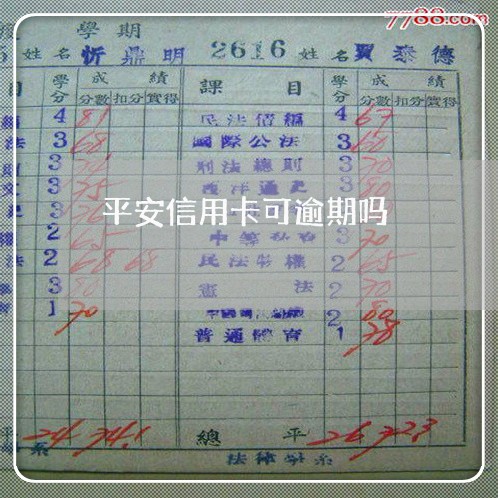 7788.com
學期
姓名 忻鼎明 2616 姓名 賈泰德
目 學分 成績 課目 學分 成績
分數 扣分 實得 分數 扣分 實得
4 81 民法債編 4 67
法 3 68 國際公法 3 60
3 刑法總則 3 70
3 75 西洋通史 3 80
平安信用卡可逾期吗
2 65 3 70
法 2 68 68 民法物權 2 65
3 80 憲法 2 70
1 70 2 80
普通體育 1 78
24 74.1 總平 26 72.3
系 法律學系